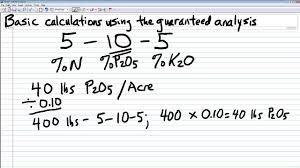 Basic calculations using the guaranteed analysis
5 - 10 - 5
%N %P₂O₅ %K₂O
40 lbs P₂O₅ /Acre
÷ 0.10
400 lbs - 5-10-5; 400 x 0.10 = 40 lbs P₂O₅